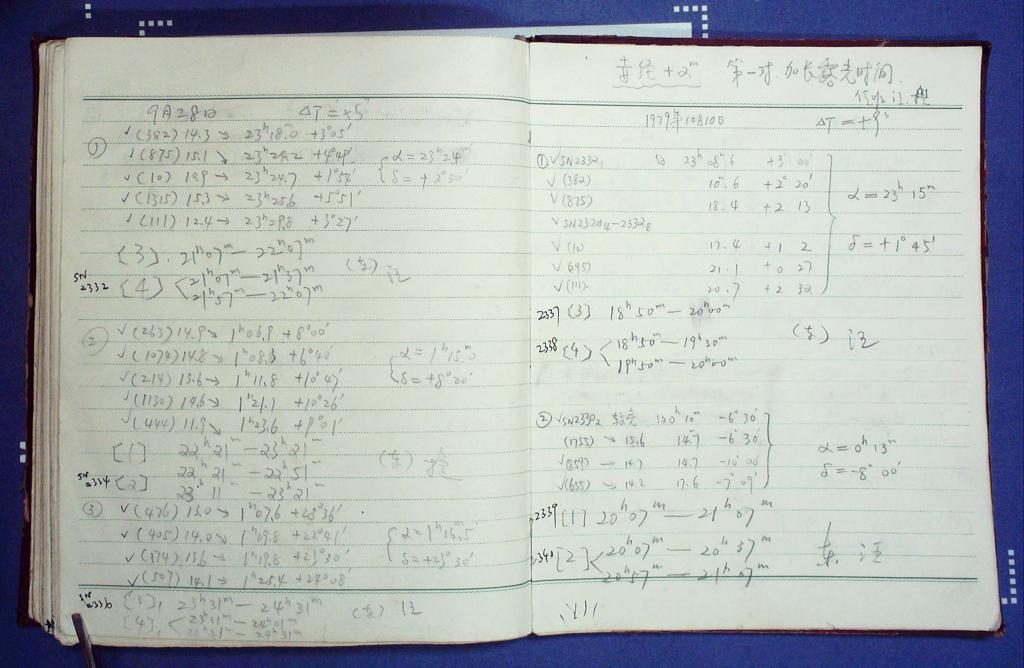 9月28日 ΔT=+5ˢ
① √(382) 14.3→ 23ʰ18ᵐ.0 +3°05′
√(875) 15.1↘ 23ʰ24.2 +4°49′
√(10) 23ʰ24.7
{α=23ʰ24ᵐ
δ=+3°30′
√(1315) 15.3→ 23ʰ25.6 +5°51′
√(111) 12.4→ 23ʰ29.8 +3°27′
[3]. 21ʰ07ᵐ—22ʰ07ᵐ
SN2332 [4] <21ʰ07ᵐ—21ʰ37ᵐ (东) 汪
21ʰ57ᵐ—22ʰ07ᵐ
② √(263) 14.9→ 1ʰ06.9 +8°00′
√(1074) 14.8→ 1ʰ08.3 +6°40′
{α=1ʰ15ᵐ.0
δ=+8°20′
√(214) 13.6→ 1ʰ11.8 +10°47′
√(1130) 14.6→ 1ʰ21.1 +10°26′
√(444) 11.9↘ 1ʰ23.6 +9°01′
[1] 22ʰ21ᵐ—23ʰ21ᵐ (东)
SN2334 [2] 22ʰ21ᵐ—22ʰ51ᵐ
23ʰ11ᵐ—23ʰ21ᵐ
③ √(476) 13.0→ 1ʰ07.6 +23°36′
√(405) 14.0→ 1ʰ09.8 +22°41′
{α=1ʰ16.5
δ=+23°30′
√(174) 13.6→ 1ʰ19.8 +23°30′
√(507) 14.1→ 1ʰ25.4 +24°08′
[3], 23ʰ31ᵐ—24ʰ31ᵐ (东) 汪
SN2336 [4], <23ʰ31ᵐ—24ʰ01ᵐ
23ʰ21ᵐ—24ʰ31ᵐ
赤经+2ᵐ 第一对.加长露光时间.
1979年10月10日 ΔT=+9ˢ
① √SN2332₁ 23ʰ08ᵐ.6 +3°00′
√(382) 10ᵐ.6 +2°20′
√(875) 18.4 +2 13
} α=23ʰ15ᵐ
√SN2320₄—2332₈
√(10) 17.4 +1 2
δ=+1°45′
√(695) 21.1 +0 27
√(111). 20.7 +2 32
2337 (3) 18ʰ50ᵐ—20ʰ00ᵐ
2338 [4] <18ʰ50ᵐ—19ʰ30ᵐ (东) 汪
19ʰ50ᵐ—20ʰ00ᵐ
② √SN2330₂ 较亮 0ʰ10ᵐ -6°30′
(1755)→15.6 14.7 -6°30′
√(859)→14.7 14.7 -10°00′
√(655)→14.2 17.6 -7°09′
} α=0ʰ13ᵐ
δ=-8°00′
2339 [1] 20ʰ07ᵐ—21ʰ07ᵐ
2340 [2] <20ʰ07ᵐ—20ʰ37ᵐ 东. 汪
20ʰ57ᵐ—21ʰ07ᵐ